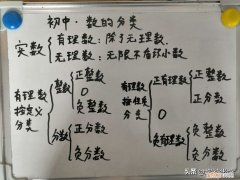 初中·数的分类
实数
有理数：除了无理数.
无理数：无限不循环小数
有理数
按定义
分类
整数
正整数
0
负整数
分数
正分数
负分数
有理数
按性质
分类
正有理数
正整数
正分数
0
负有理数
负整数
负分数